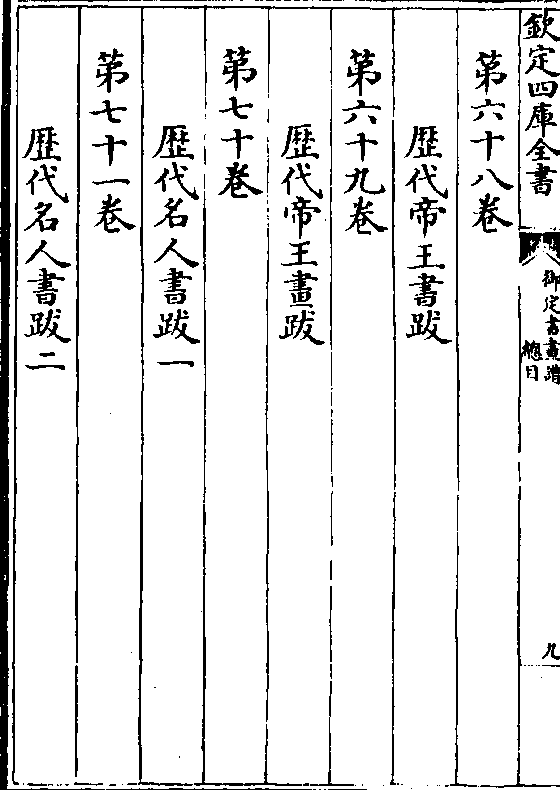 欽定四庫全書
御定書畫譜
總目
九
第六十八卷
歷代帝王書跋
第六十九卷
歷代帝王畫跋
第七十卷
歷代名人書跋一
第七十一卷
歷代名人書跋二